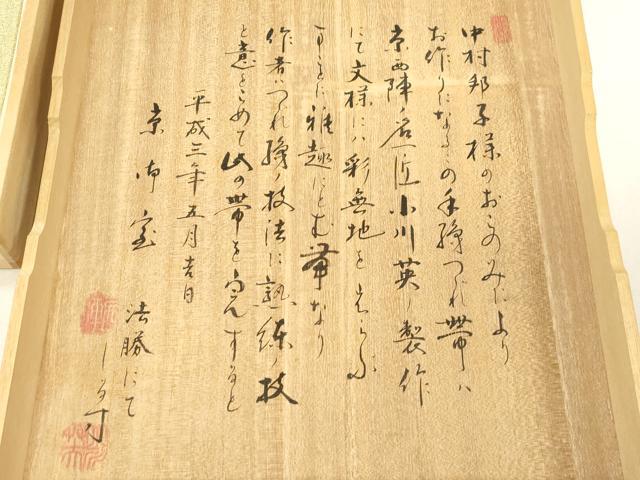 中村邦子様のおこのみにより
お作りになるこの手織つづれ帯ハ
京西陣ノ名匠小川英ノ製作
にて文様にハ彩無地を
まことに雅趣にとむ帯なり
作者ハつづれ織ノ技法に熟練ノ技
と意をこめて此の帯を するると
平成三年五月吉日
京御室
法勝にて
しるす